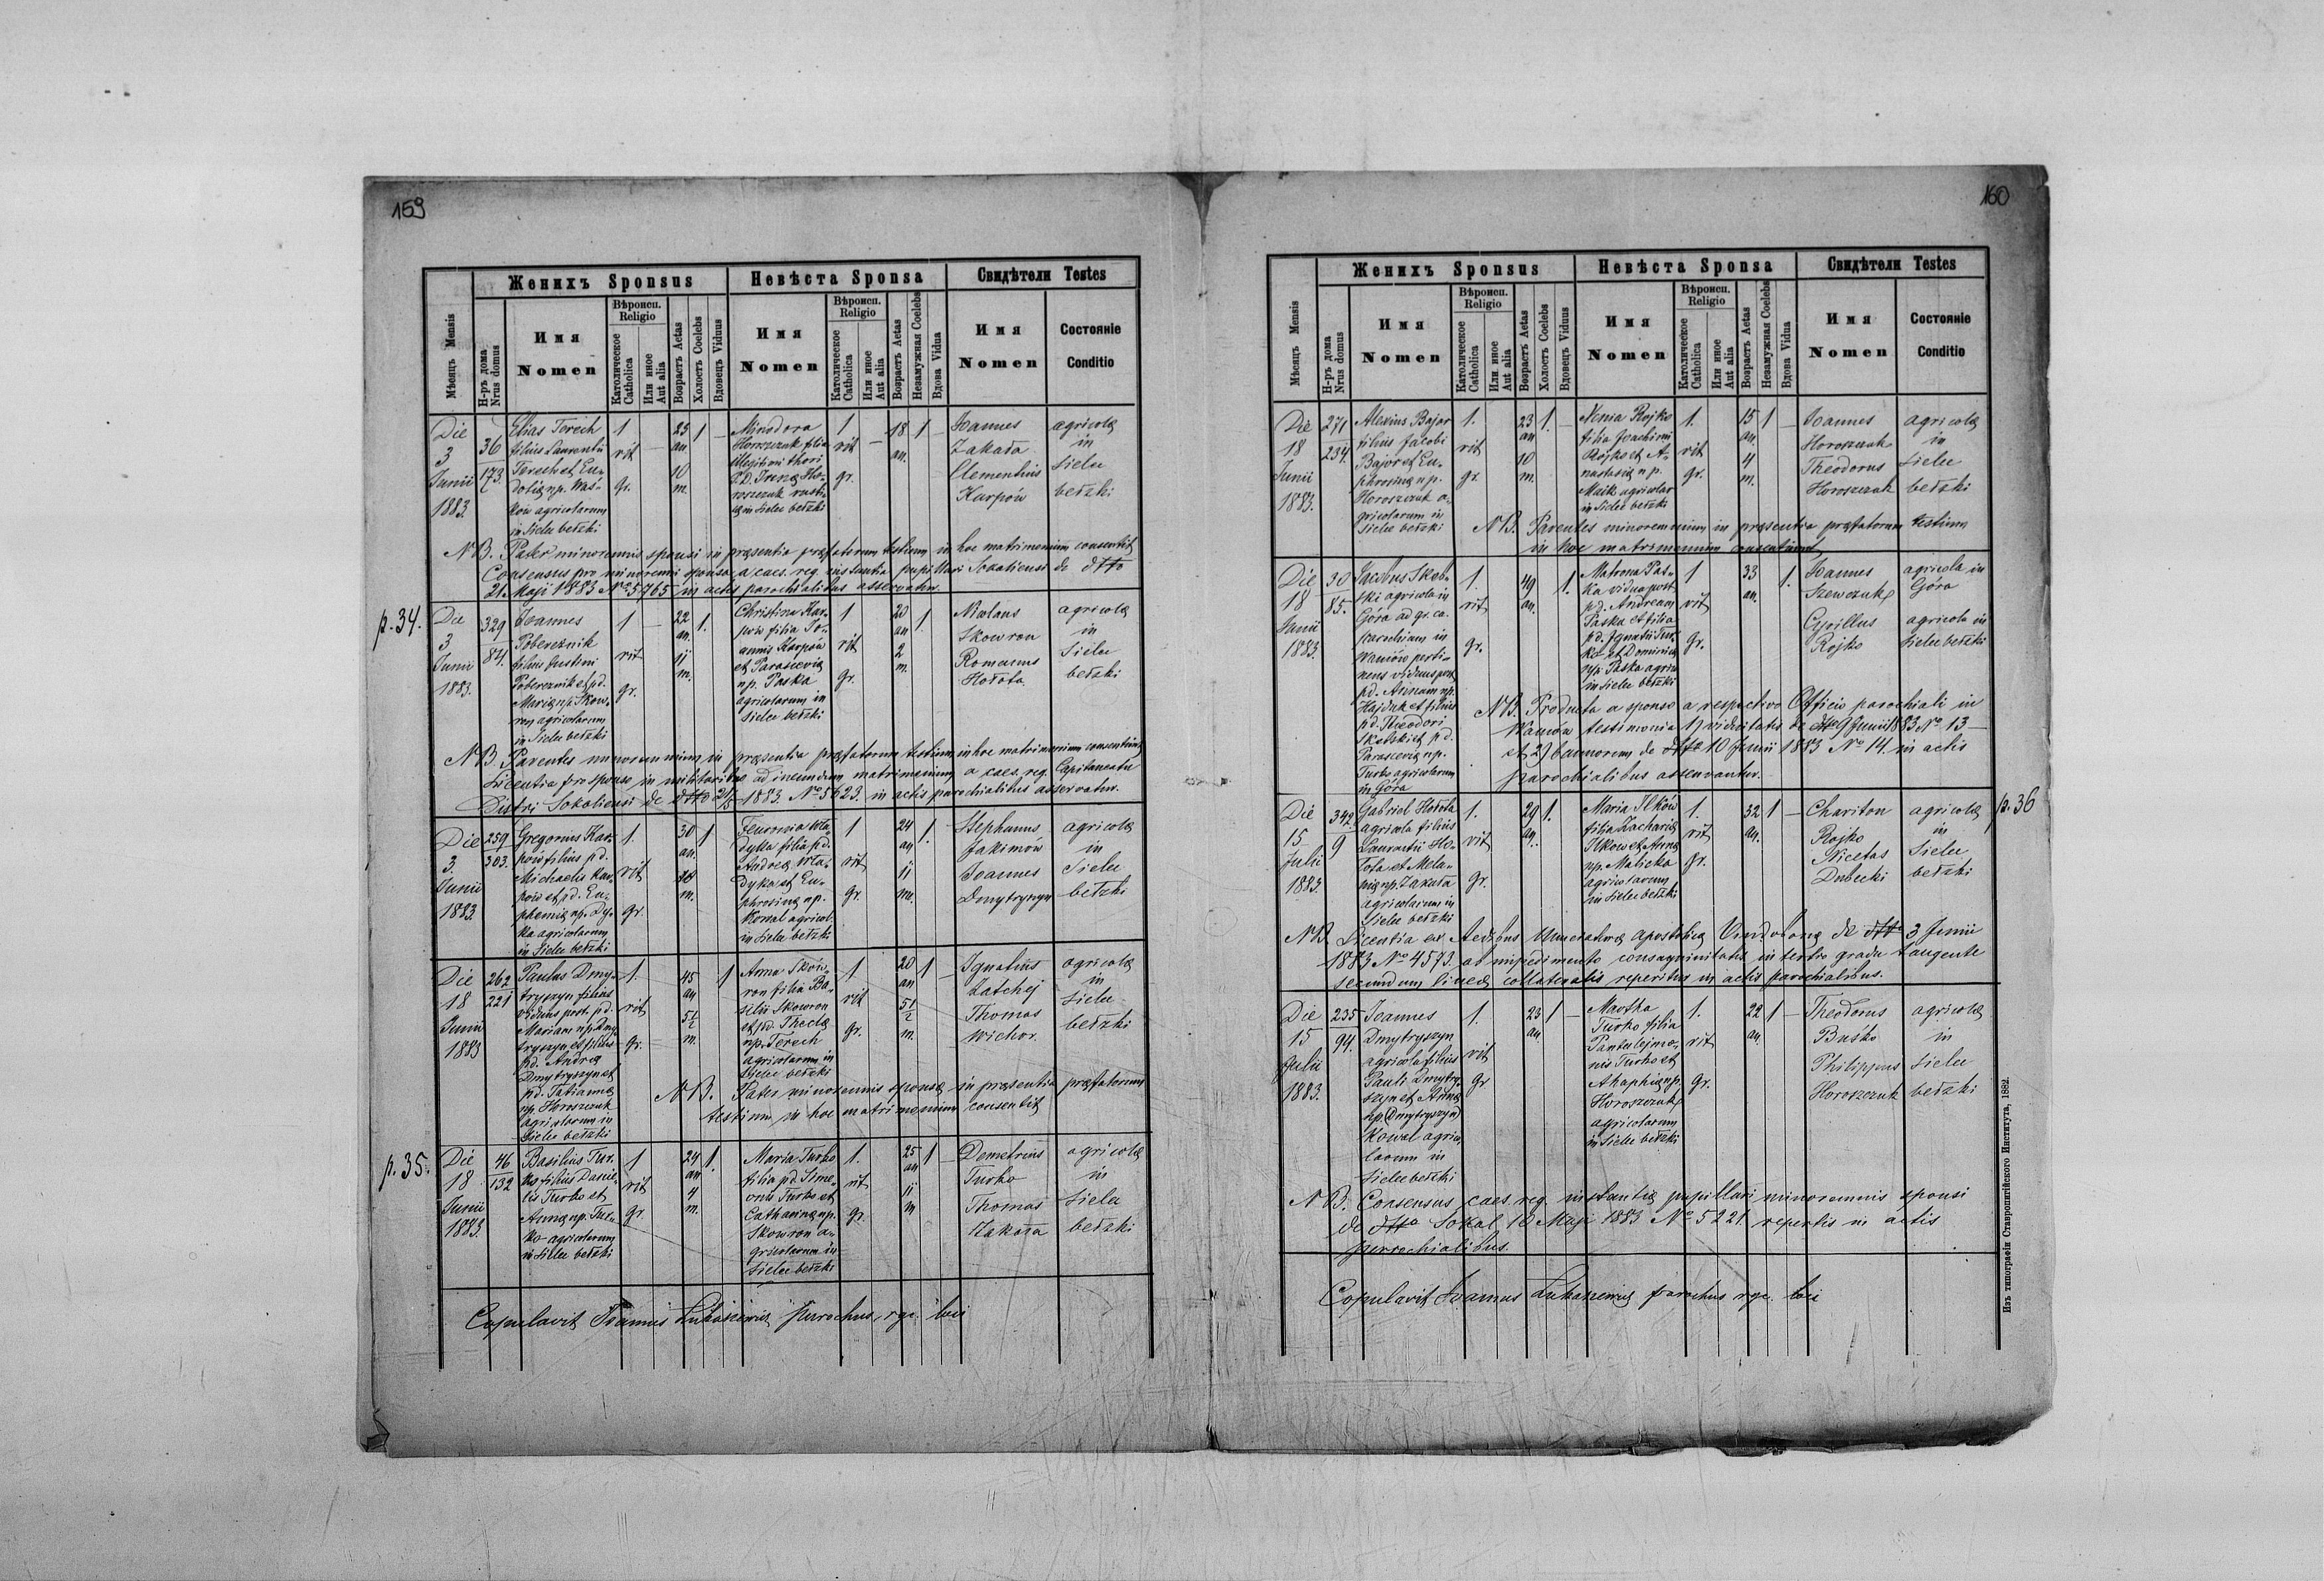 159
Женихъ Sponsus
Невѣста Sponsa
Свидѣтели Testes
Мѣсяцъ Mensis
Н-ръ дома
Nrus domus
Имя
Nomen
Вѣроисп.
Religio
Католическое
Catholica
Или иное
Aut alia
Возрастъ Aetas
Холостъ Coelebs
Вдовецъ Viduus
Имя
Nomen
Вѣроисп.
Religio
Католическое
Catholica
Или иное
Aut alia
Возрастъ Aetas
Незамужная Coelebs
Вдова Vidua
Имя
Nomen
Состояніе
Conditio
Die
3
Junii
1883.
36
173.
Elias Terech
filius Laurentii
Terech et Eu-
dociæ np. Waś-
ków agricolarum
in Sielec bełzki
1
rit
gr.
23
an
10
m.
1
Minodora
Horoszczuk filia
illegitimi thori
P.D. Irenæ Ho-
roszczuk rusti-
cæ in Sielec bełzki
1
rit
gr.
18
an.
1
Joannes
Zakała
Clementius
Karpów
agricolæ
in
Sielec
bełzki
NB. Pater minorennis sponsi in præsentia præfatorum testium in hoc matrimonium consentit
Consensus pro minorenni sponsa a caes. reg. instantia pupillari Sokaliensi de dtto
21 Maji 1883 No 5765 in actis parochialibus asservatur.
p.34.
Die
3
Junii
1883.
329
84.
Joannes
Pobereznik
filius Justini
Pobereznik et pd.
Mariæ np. Skow-
ron agricolarum
in Sielec bełzki
1
rit
gr.
22
an.
11
m.
1.
Christina Kar-
pów filia Jo-
annis Karpów
et Parasceviæ
np. Paska
agricolarum in
Sielec bełzki
1
rit
gr.
20
an
2
m.
1.
Nicolaus
Skowron
Romanus
Hołota
agricolæ
in
Sielec
bełzki
NB. Parentes minorennium in præsentia præfatorum testium in hoc matrimonium consentiunt
Licentia pro sponso in militaribus ad ineundum matrimonium a caes. reg. Capitaneatu
Distri. Sokaliensi de dtto 21/5 1883. No 5623. in actis parochialibus asservatur.
Die
3.
Junii
1883
259
303.
Gregorius Kar-
pów filius pd.
Michaelis Kar-
pów et pd. Eu-
phemiæ np. Dy-
ka agricolarum
in Sielec bełzki
1.
rit
gr.
30
an.
10
m.
1
Feuronia Wła-
dyka filia pd.
Andreæ Wła-
dyka et Eu-
phrosinæ np.
Kowal agricol.
in Sielec bełzki
1
rit
gr.
24
an
11
m.
1.
Stephanus
Jakimów
Joannes
Dmytryszyn
agricolæ
in
Sielec
bełzki
Die
18
Junii
1883
262
221
Paulus Dmy-
tryszyn filius
viduus post. pd.
Mariam np. Dmy-
tryszyn et filius
pd. Andreæ
Dmytryszyn et
pd. Tatiannæ
np. Horoszczuk
agricolarum in
Sielec bełzki
1.
rit
gr.
45
an
5 1/2
m.
1
Anna Sków-
ron filia Ba-
silii Skowron
et pd. Theclæ
np. Terech
agricolarum in
Sielec bełzki
1
rit
gr.
20
an
5 1/2
m.
1
Ignatius
Łatchej
Thomas
Wichor
agricolæ
in
Sielec
bełzki
NB. Pater minorennis sponsæ in præsentia præfatorum
testium in hoc matrimonium consentit
p.35.
Die
18
Junii
1883.
46
132
Basilius Tur-
ko filius Danie-
lis Turko et
Annæ np. Tur-
ko agricolarum
in Sielec bełzki
1
rit
gr.
24
an
4
m.
1.
Maria Turko
filia pd Sime-
onis Turko et
Catharinæ np.
Skowron a-
gricolarum in
Sielec bełzki
1.
rit
gr.
25
an
11
m
1
Demetrius
Turko
Thomas
Zakała
agricolæ
in
Sielec
bełzki
Copulavit Joannes Łukasiewicz parochus rgc. loci
160
Женихъ Sponsus
Невѣста Sponsa
Свидѣтели Testes
Мѣсяцъ Mensis
Н-ръ дома
Nrus domus
Имя
Nomen
Вѣроисп.
Religio
Католическое
Catholica
Или иное
Aut alia
Возрастъ Aetas
Холостъ Coelebs
Вдовецъ Viduus
Имя
Nomen
Вѣроисп.
Religio
Католическое
Catholica
Или иное
Aut alia
Возрастъ Aetas
Незамужная Coelebs
Вдова Vidua
Имя
Nomen
Состояніе
Conditio
Die
18
Junii
1883.
271
234.
Alexius Bajor
filius Jacobi
Bajor et Eu-
phrosinæ np.
Horoszczuk a-
gricolarum in
Sielec bełzki
1.
rit
gr.
23
an
10
m.
1.
Xenia Rojko
filia Joachimi
Rojko et A-
nastasiæ np.
Maik agricolar
in Sielec bełzki
1.
rit
gr.
15
an.
4
m.
1
Joannes
Horoszczuk
Theodorus
Horoszczuk
agricolæ
in
Sielec
bełzki
NB. Parentes minorennium in præsentia præfatorum testium
in hoc matrimonium consentiunt
Die
18
Junii
1883.
30
85.
Jacobus Skab-
ski agricola in
Góra ad gr. ca.
parochiam in
Waniów perti-
nens viduus post
pd. Annam np.
Hajduk et filius
pd. Theodori
Skabski et pd.
Parasceviæ np.
Turko agricolarum
in Góra
1.
rit
gr.
49
an.
1.
Matrona Pas-
ka vidua post
pd. Andream
Paska et filia
pd. Ignatii Tur-
ko et Dominicæ
np. Paska agrico
in Sielec bełzki
1
rit
gr.
33
an.
1.
Joannes
Szewczuk
Cyrillus
Rojko
agricola in
Góra
agricola in
Sielec bełzki
NB. Producta a sponso a respectivo Officio parochiali in
Waniów testimonia 1) viduitatis de dtto 9 Junii 1883 No. 13
et 2) bannorum de dtto 10 Junii 1883 No 14. in actis
parochialibus asservantur.
p.36
Die
15
Julii
1883.
392
9
Gabriel Hołota
agricola filius
Laurentii Ho-
łota et Mela-
niæ np. Zakała
agricolarum in
Sielec bełzki
1.
rit
gr.
29
an.
1.
Maria Ilków
filia Zachariæ
Ilków et Annæ
np. Malicka
agricolarum
in Sielec bełzki
1.
rit
gr.
32
an.
1
Chariton
Rojko
Nicetas
Dubecki
agricolæ
in
Sielec
bełzki
NB. Licentia ex Aedibus Nuncaturæ apostolicæ Vindobonæ de dtto 3 Junii
1883 No 4573. ab impedimento consaguinitatis in tertio gradu tangente
secundum lineæ collateralis reperitur in actis parochialibus.
Die
15
Julii
1883.
235
94.
Joannes
Dmytryszyn
agricola filius
Pauli Dmytry-
szyn et Annæ
np. (Dmytryszyn)
Kowal agrico-
larum in
Sielec bełzki
1.
rit
gr
23
an
1
Martha
Turko filia
Pantelejmo-
nis Turko et
Ahaphiæ np.
Horoszczuk
agricolarum
in Sielec bełzki
1.
rit
gr.
22
an.
1
Theodorus
Busko
Philippus
Horoszczuk
agricolæ
in
Sielec
bełzki
NB. Consensus caes. reg. instantiæ pupillari minorennis sponsi
de dtto Sokal 10 Maji 1883 No 5221 repertis in actis
parrochialibus.
Copulavit Joannes Łukasiewicz parochus rgc. loci
Изъ типографіи Ставропигійского Института, 1882.